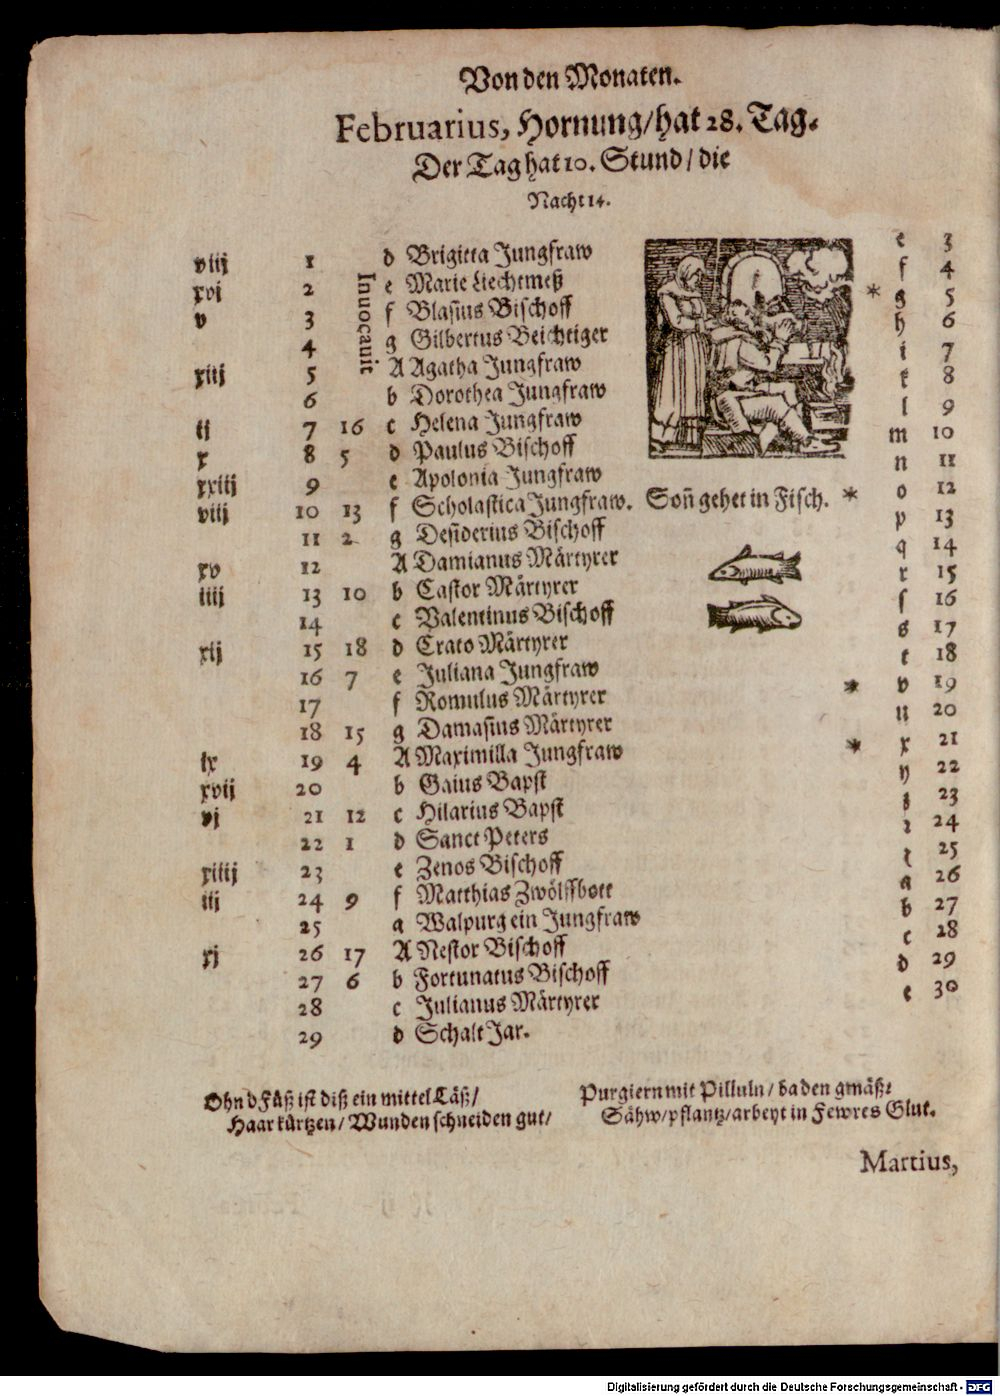 Von den Monaten.
Februarius, Hornung/hat 28. Tag.
Der Tag hat 10. Stund/ die
Nacht 14.
viij 1 d Brigitta Jungfraw e 3
xvj 2 e Marie Liechtmeß f 4
v 3 f Blasius Bischoff * g 5
4 g Gilbertus Beichtiger h 6
Inuocauit
xiij 5 A Agatha Jungfraw i 7
6 b Dorothea Jungfraw k 8
ij 7 16 c Helena Jungfraw l 9
x 8 5 d Paulus Bischoff m 10
xxiij 9 e Apolonia Jungfraw n 11
viij 10 13 f Scholastica Jungfraw. Soñ gehet in Fisch. * o 12
11 2 g Desiderius Bischoff p 13
xv 12 A Damianus Märtyrer q 14
iiij 13 10 b Castor Märtyrer r 15
14 c Valentinus Bischoff ſ 16
xij 15 18 d Crato Märtyrer s 17
16 7 e Juliana Jungfraw t 18
17 f Romulus Märtyrer * v 19
18 15 g Damasius Märtyrer u 20
ix 19 4 A Maximilla Jungfraw * x 21
xvij 20 b Gaius Bapst y 22
vj 21 12 c Hilarius Bapst z 23
22 1 d Sanct Peters 24
xiiij 23 e Zenos Bischoff 25
iij 24 9 f Matthias Zwölffbott a 26
25 a Walpurg ein Jungfraw b 27
xj 26 17 A Nestor Bischoff c 28
27 6 b Fortunatus Bischoff d 29
28 c Julianus Märtyrer e 30
29 d Schalt Jar.
Ohn d Füß ist diß ein mittel Läß/
Haar kürtzen/ Wunden schneiden gut/
Purgiern mit Pilluln/ baden gmäß:
Sähw/pflantz/arbeyt in Fewres Glut.
Martius,
Digitalisierung gefördert durch die Deutsche Forschungsgemeinschaft - DFG